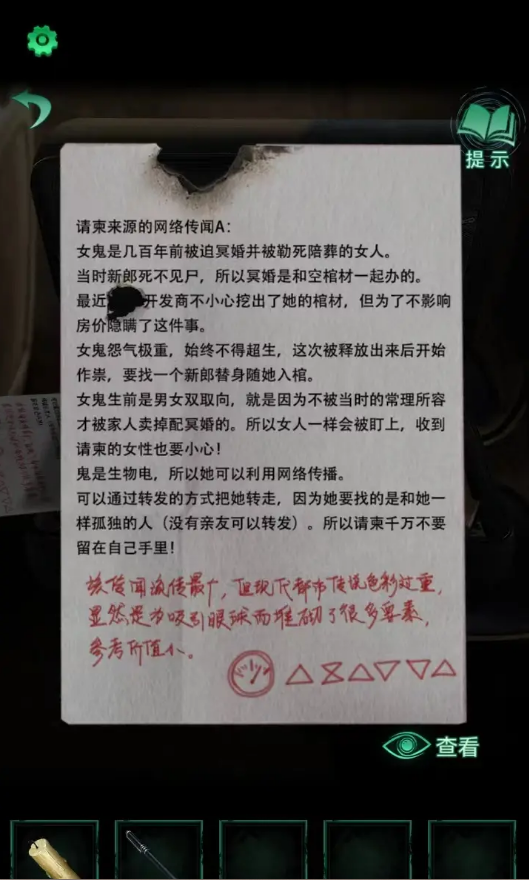 提示
请柬来源的网络传闻A：
女鬼是几百年前被迫冥婚并被勒死陪葬的女人。
当时新郎死不见尸，所以冥婚是和空棺材一起办的。
最近 开发商不小心挖出了她的棺材，但为了不影响
房价隐瞒了这件事。
女鬼怨气极重，始终不得超生，这次被释放出来后开始
作祟，要找一个新郎替身随她入棺。
女鬼生前是男女双取向，就是因为不被当时的常理所容
才被家人卖掉配冥婚的。所以女人一样会被盯上，收到
请柬的女性也要小心！
鬼是生物电，所以她可以利用网络传播。
可以通过转发的方式把她转走，因为她要找的是和她一
样孤独的人（没有亲友可以转发）。所以请柬千万不要
留在自己手里！
该传闻流传最广，但现代都市传说色彩过重，
显然是为吸引眼球而堆砌了很多要素，
参考价值小。
查看